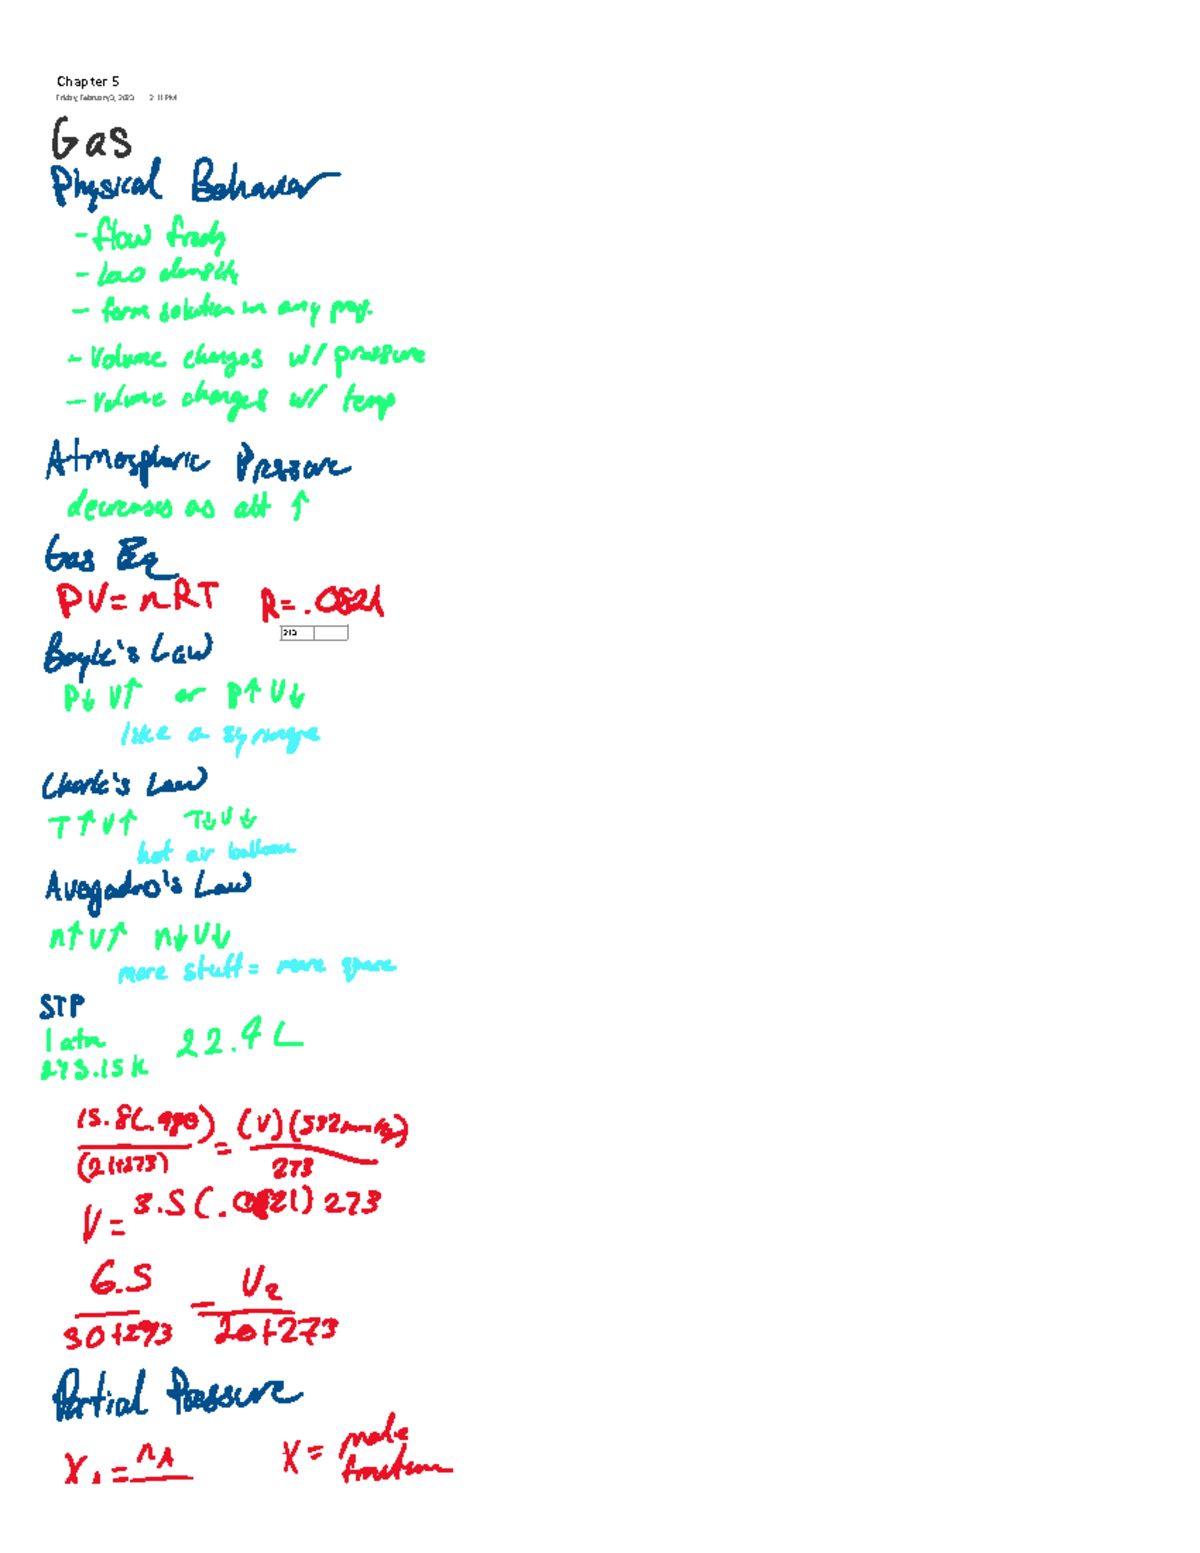 Chapter 5
Friday, February 3, 2023 2:11 PM
Gas
Physical Behavior
- flow freely
- low density
- form solution in any prop.
- Volume changes w/ pressure
- volume changes w/ temp
Atmospheric Pressure
decreases as alt ↑
Gas Eq
PV = nRT R = .0821
Boyle's Law
P↓ V↑ or P↑ V↓
like a syringe
Charle's Law
T↑ V↑ T↓ V↓
hot air balloon
Avogadro's Law
n↑ V↑ n↓ V↓
more stuff = more space
STP
1 atm 22.4 L
273.15 K
15.8(.980) = (V)(532mmHg)
(21+273) 273
V = 3.5 (.0821) 273
6.5 = V₂
30+273 20+273
Partial Pressure
X = mole fraction